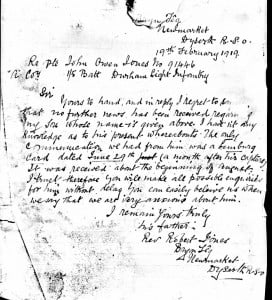 Newmarket
Dyserth R.S.O.
19th February 1919
Re Pte John Owen Jones No 91446
"B" Coy 1/5 Batt Durham Light Infantry
Sir
Yours to hand, and in reply I regret to say
that no further news has been received regard
my Son whose name is given above I have not any
knowledge as to his present whereabouts. The only
Communication we had from him was a
card dated June 29th (a month after his capture)
It was received about the beginning of August,
I trust therefore you will make all possible enquiries
for him without delay You can easily believe us when
we say that we are very anxious about him.
I remain Yours truly
his father:
Rev Robert Jones
Newmarket
Dyserth R.S.O